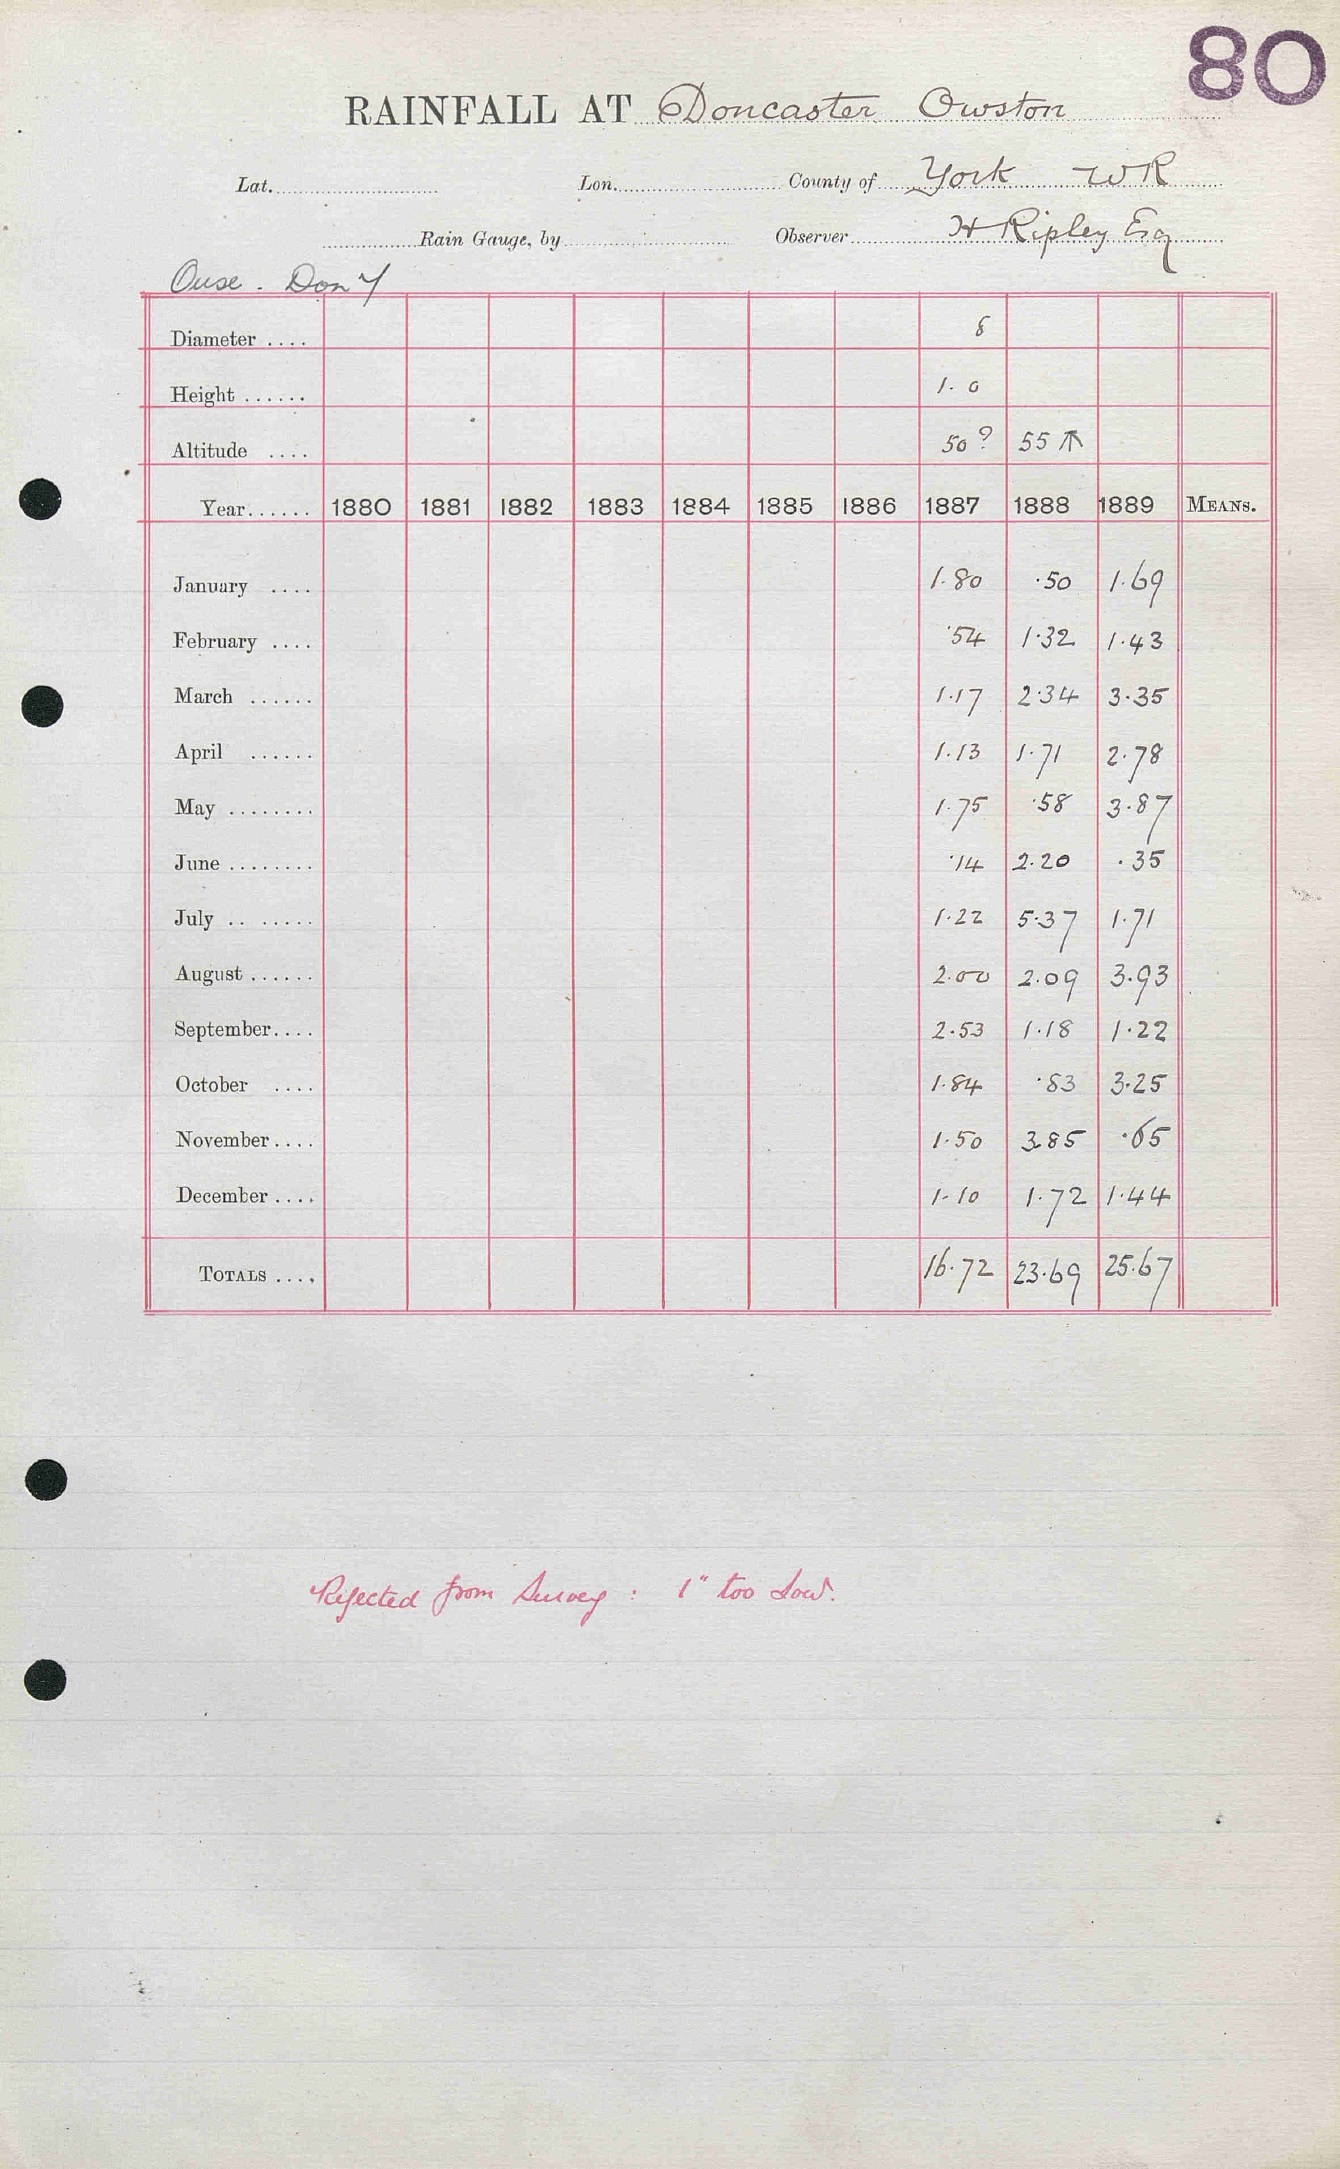 80
RAINFALL AT Doncaster Owston
Lat. Lon. County of York WR
Rain Gauge, by Observer H Ripley Esq
Ouse . Don Y
Diameter .... 8
Height ...... 1. 0
Altitude .... 50? 55
Year...... 1880 1881 1882 1883 1884 1885 1886 1887 1888 1889 MEANS.
January .... 1.80 .50 1.69
February .... .54 1.32 1.43
March ...... 1.17 2.34 3.35
April ...... 1.13 1.71 2.78
May ........ 1.75 .58 3.87
June ........ .14 2.20 .35
July .. ...... 1.22 5.37 1.71
August ...... 2.00 2.09 3.93
September.... 2.53 1.18 1.22
October .... 1.84 .83 3.25
November .... 1.50 3.85 .65
December .... 1.10 1.72 1.44
TOTALS .... 16.72 23.69 25.67
Rejected from Survey : 1" too low.